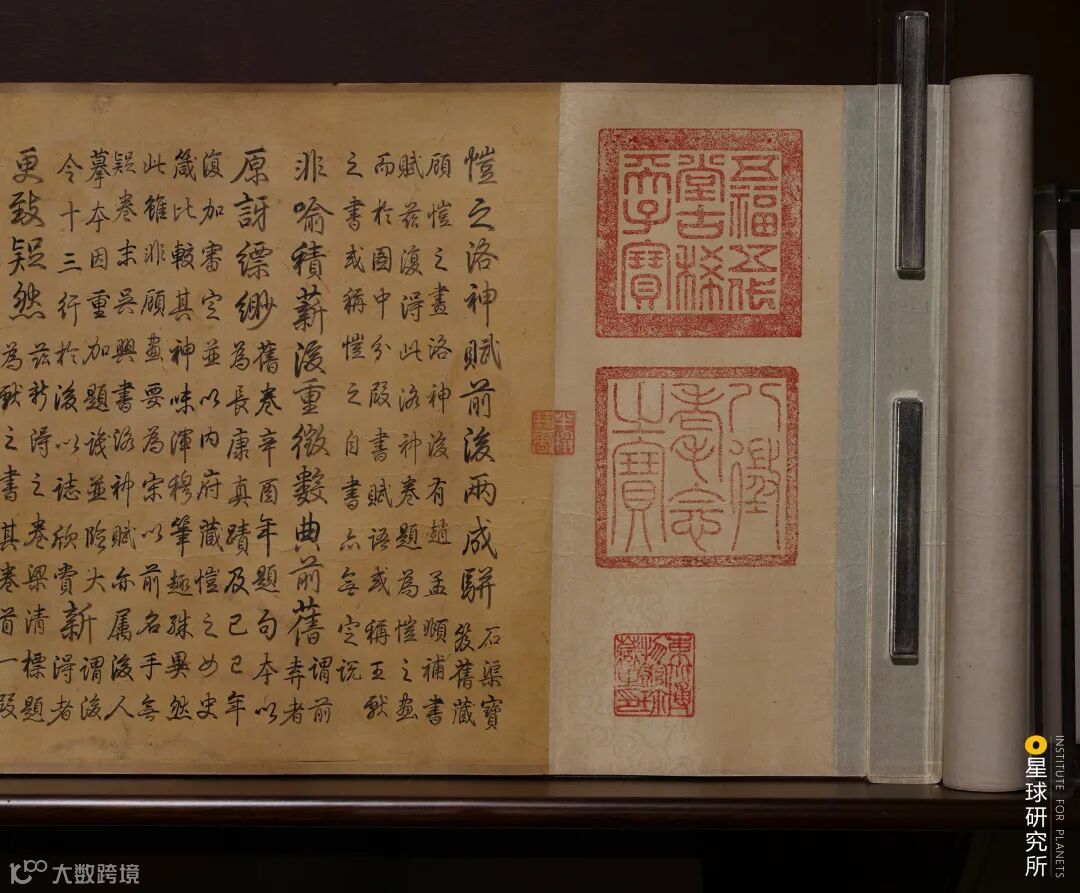 愷之洛神賦前後兩成駢
石渠寶
笈舊藏
顧愷之畫洛神後有趙孟頫補書
賦茲復得此洛神卷題為愷之畫
而於圖中分段書賦語或稱王獻
之書或稱愷之自書亦無定說
非喻積薪後重徵數典前舊
謂前
弆者
原訝縹緲
舊卷辛酉年題句本以
為長康真蹟及己巳年
復加審定並以內府藏愷之女史
箴比較其神味渾穆筆趣殊異然
此雖非顧畫要為宋以前名手無
疑卷末吳興書洛神賦亦屬後人
摹本因重加題識並鈐大
令十三行於後以誌欣賞
新
謂後
得者
更致疑然
茲新得之卷梁清標題
為獻之書其卷首一段
五福五代
堂古稀
天子寶
八徵
耄念
之寶
東北博
物館珍
藏之印
星球研究所
INSTITUTE FOR PLANETS
大数跨境